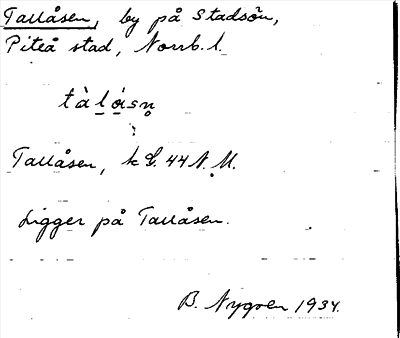 Tallåsen, by på Stadsön,
Piteå stad, Norrb. l.
tàlǻsn̥
Tallåsen, k G. 44 N. M.
Ligger på Tallåsen.
B. Nygren 1934.